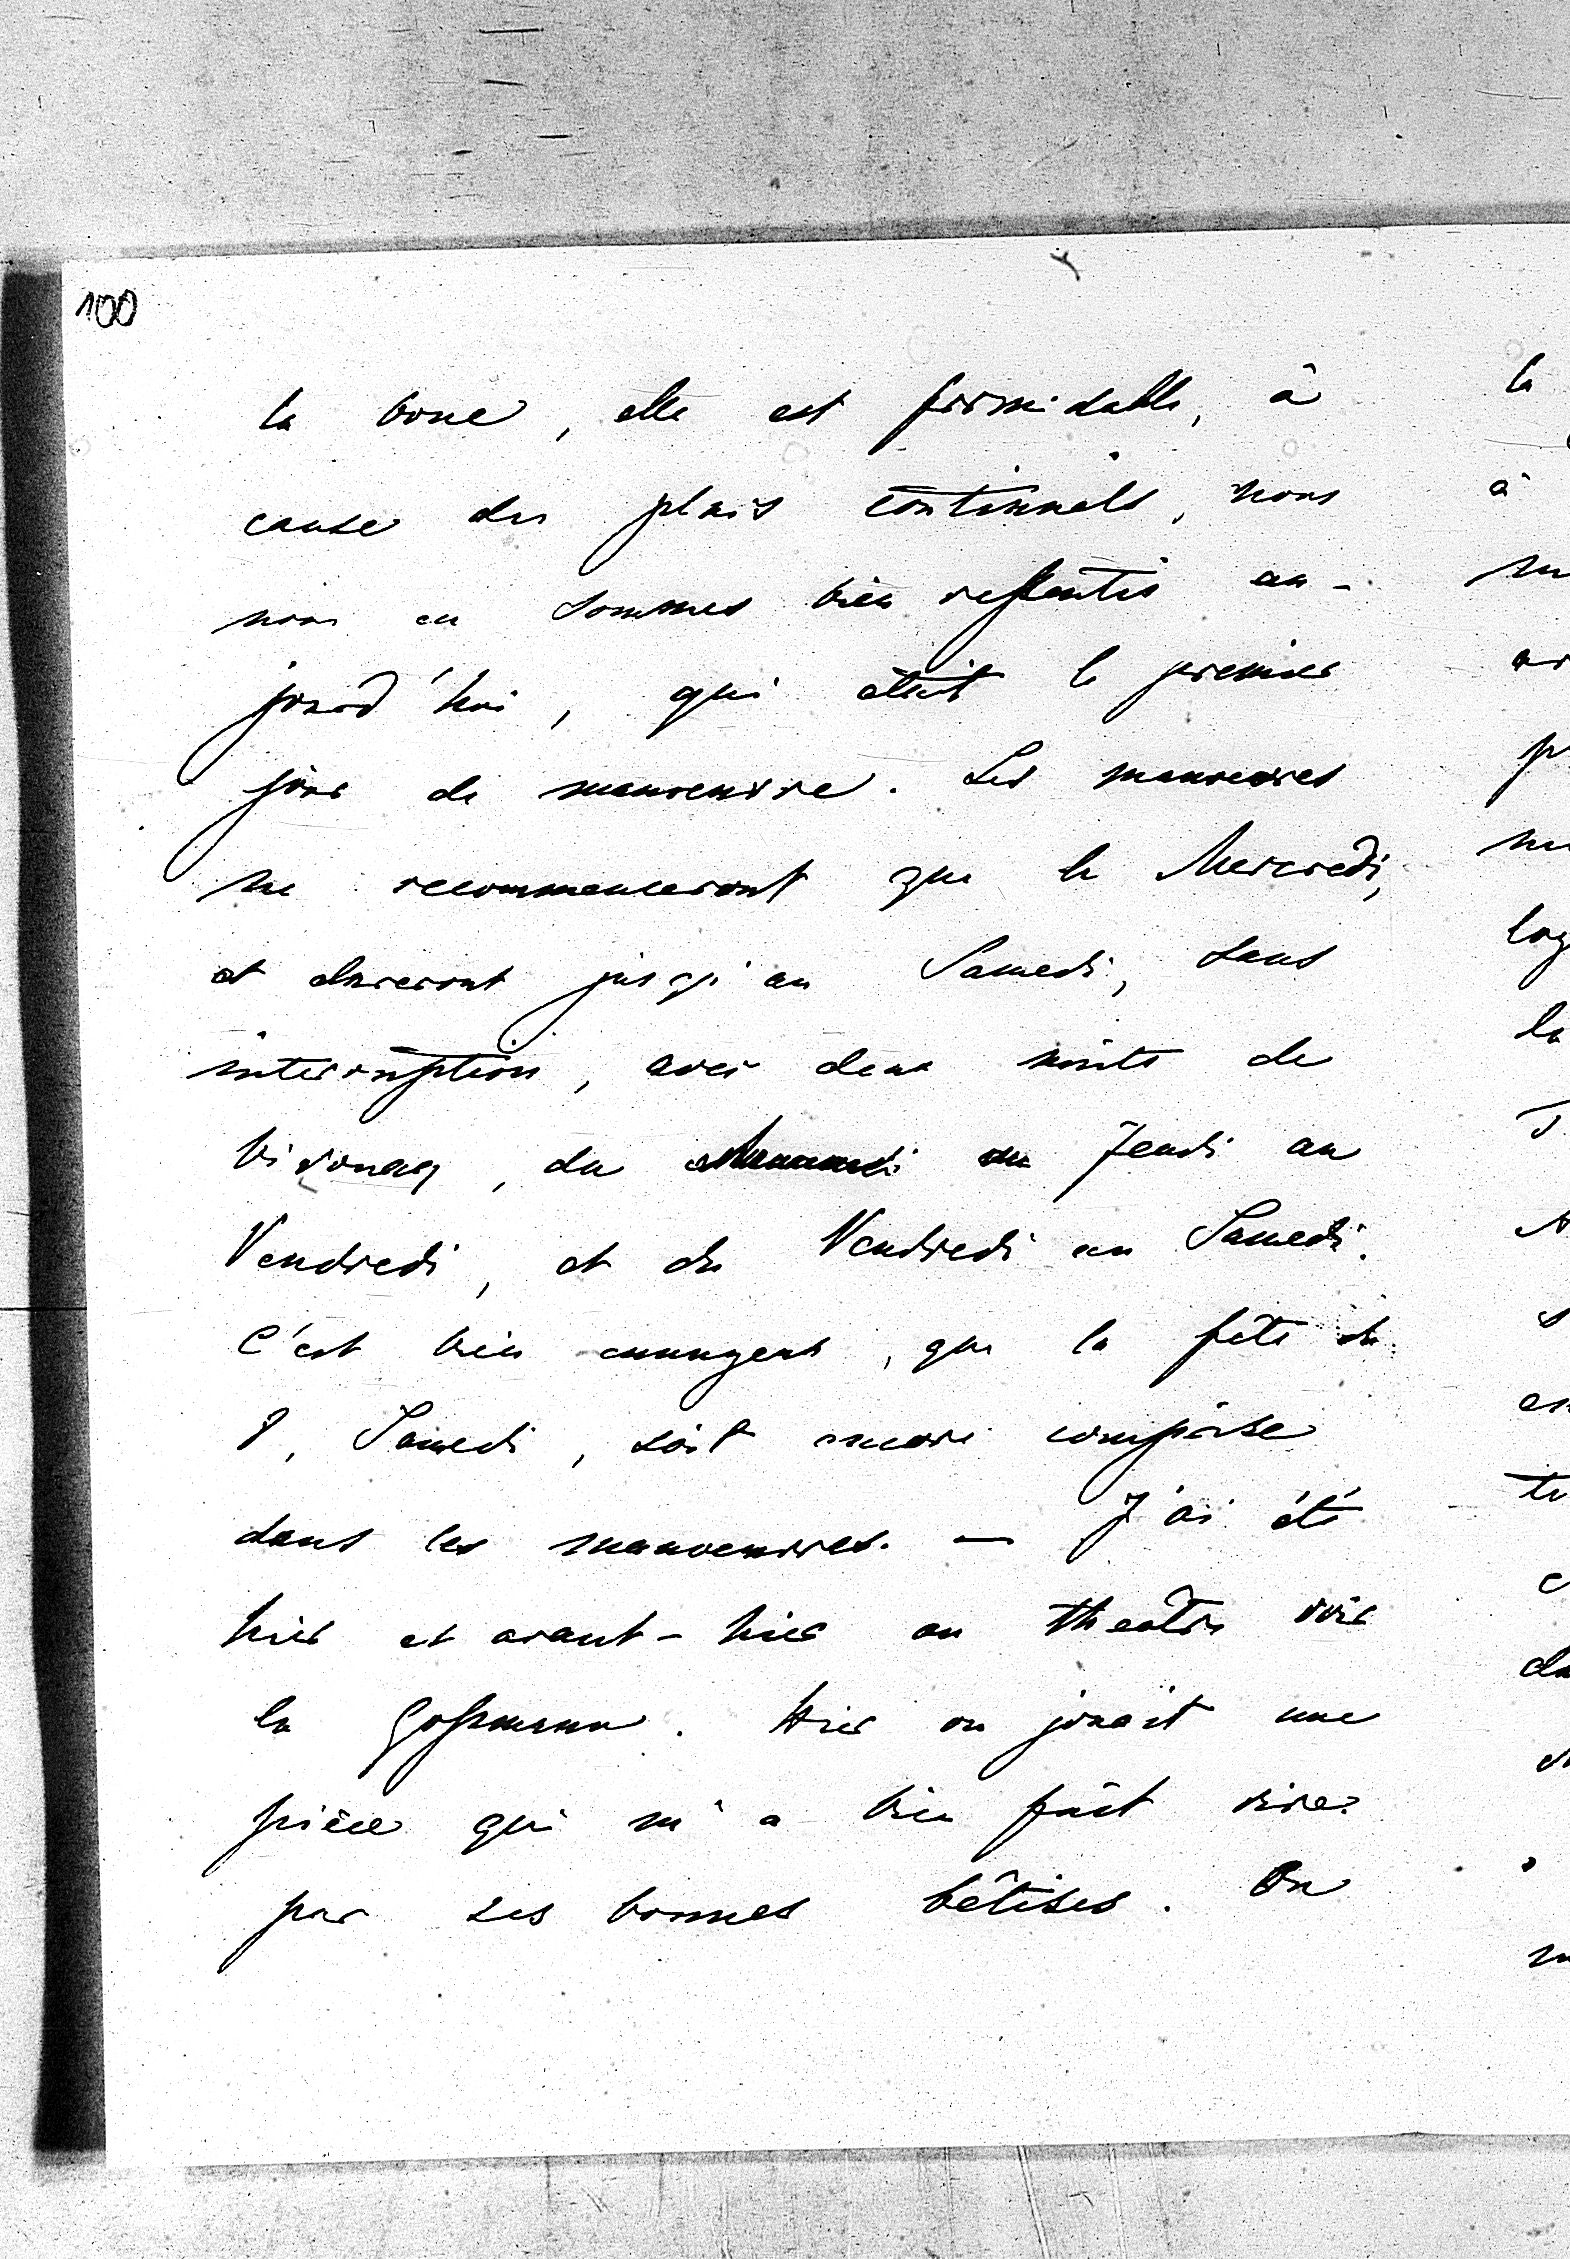 100
la boue, elle est formidable, à
cause des pluis continuels, nous
nous en sommes bien ressentis au-
jourd'hui, qui était le premier
jour de manoeuvre. Les manoeuvres
ne recommenceront que le Mercredi,
et dureront jusqu'au Samedi, sans
interruption, avec deux nuits de
bivouaq, du au Jeudi au
Vendredi, et du Vendredi au Samedi.
C'est bien ennuyeux, que la fête du
8, Samedi, soit encore comprise
dans les manoeuvres. — J'ai été
hier et avant-hier au theatre voir
la Goßmann. Hier on jouait une
pièce qui m'a bien fait rire
par ses bonnes bêtises. On